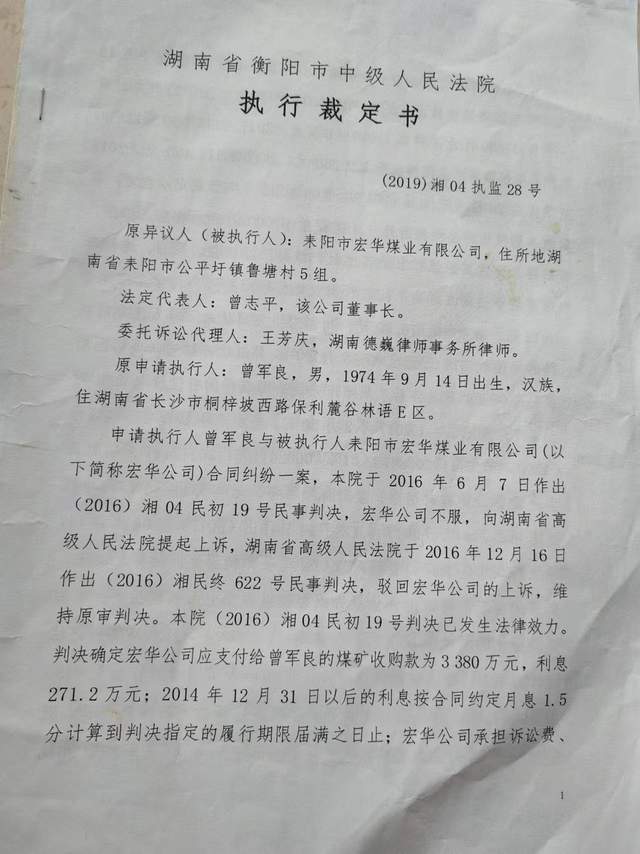 湖南省衡阳市中级人民法院
执行裁定书
(2019)湘04执监28号
原异议人（被执行人）：耒阳市宏华煤业有限公司，住所地湖
南省耒阳市公平圩镇鲁塘村5组。
法定代表人：曾志平，该公司董事长。
委托诉讼代理人：王芳庆，湖南德巍律师事务所律师。
原申请执行人：曾军良，男，1974年9月14日出生，汉族，
住湖南省长沙市桐梓坡西路保利麓谷林语E区。
申请执行人曾军良与被执行人耒阳市宏华煤业有限公司(以
下简称宏华公司)合同纠纷一案，本院于2016年6月7日作出
（2016）湘04民初19号民事判决，宏华公司不服，向湖南省高
级人民法院提起上诉，湖南省高级人民法院于2016年12月16日
作出（2016）湘民终622号民事判决，驳回宏华公司的上诉，维
持原审判决。本院（2016）湘04民初19号判决已发生法律效力。
判决确定宏华公司应支付给曾军良的煤矿收购款为3380万元，利息
271.2万元；2014年12月31日以后的利息按合同约定月息1.5
分计算到判决指定的履行期限届满之日止；宏华公司承担诉讼费、
1